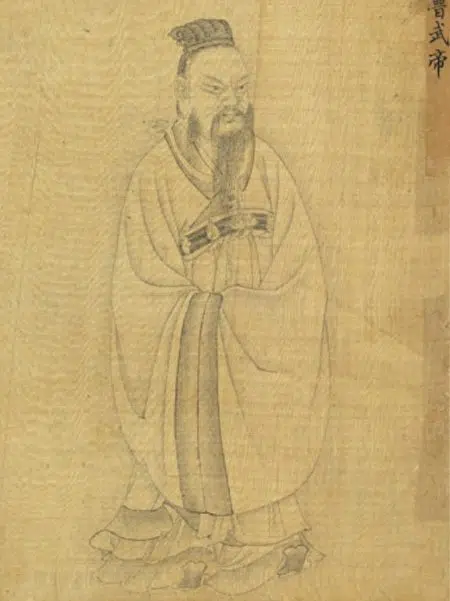 晉武帝